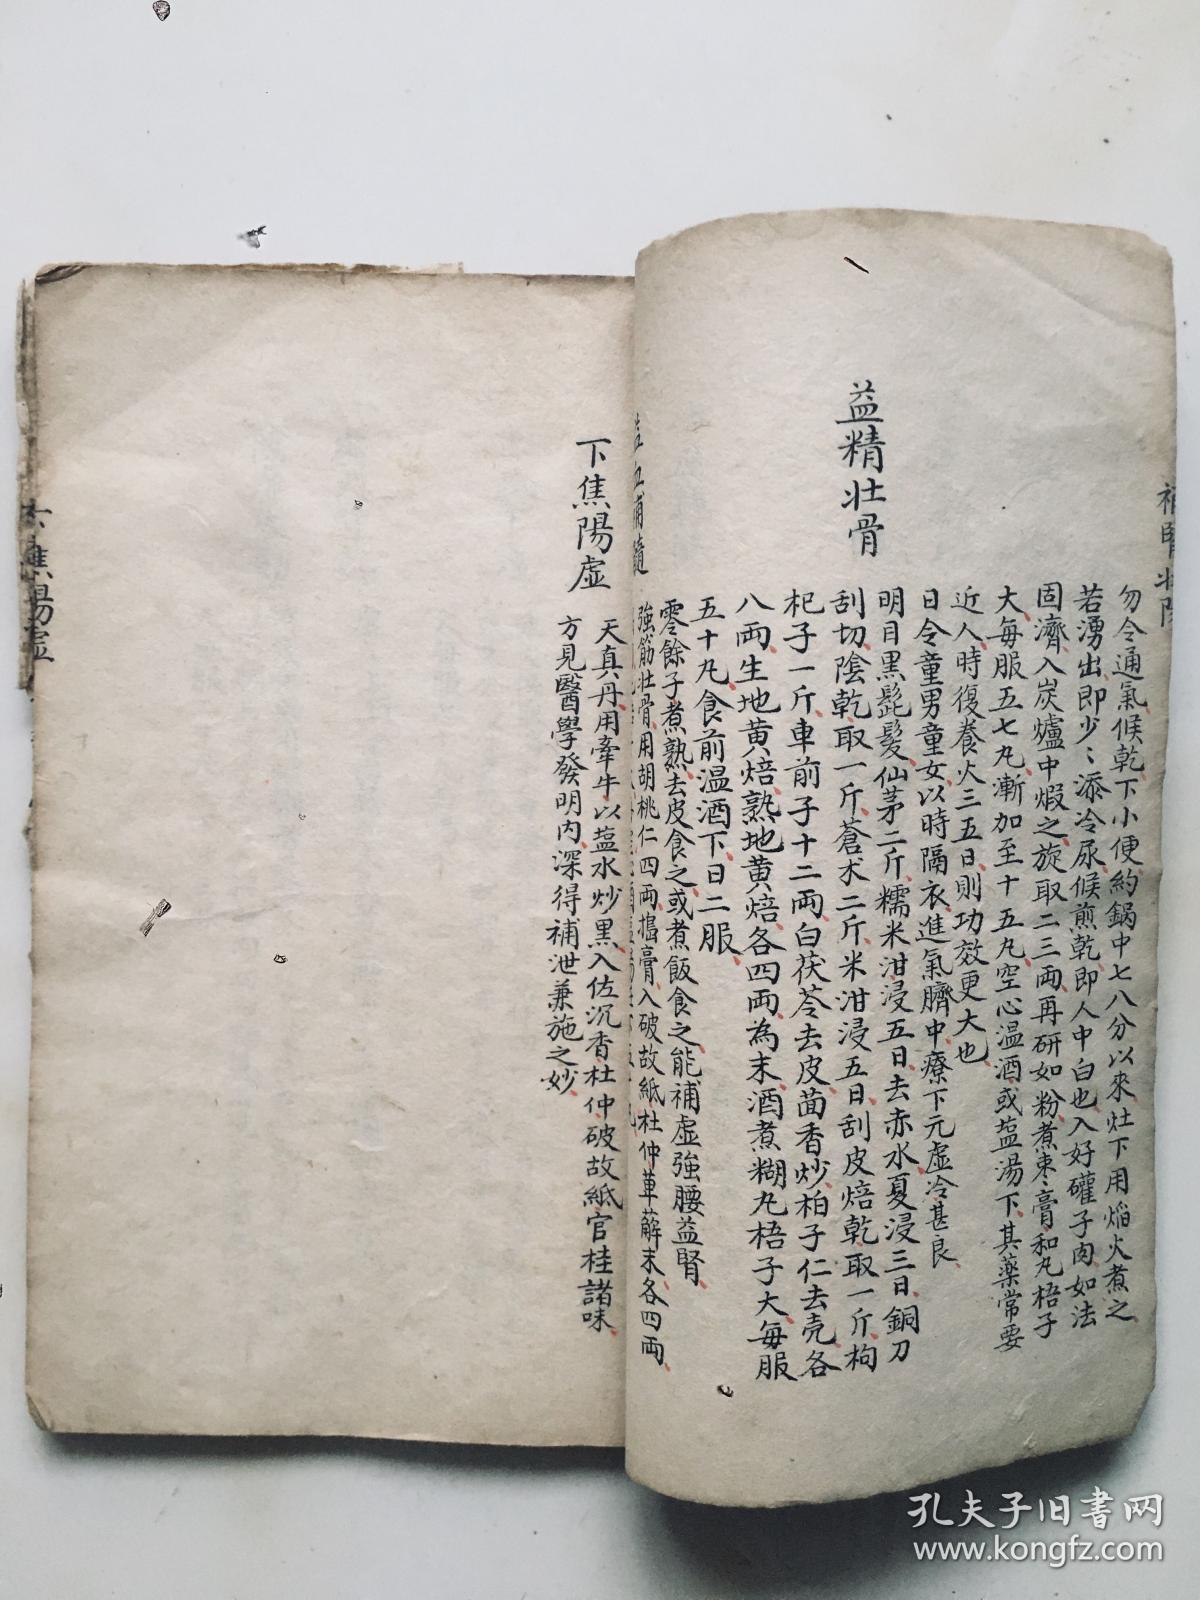 補腎壯陽
勿令通氣候乾下小便約鍋中七八分以來灶下用焰火煮之
若湧出即少〻添冷尿候煎乾即人中白也入好礶子肉如法
固濟入炭爐中煆之旋取二三両再研如粉煮棗膏和丸梧子
大每服五七丸漸加至十五丸空心温酒或塩湯下其薬常要
近人時復養火三五日則功效更大也
日令童男童女以時隔衣進氣臍中療下元虛冷甚良
益精壯骨
明目黑髭髮仙茅二斤糯米泔浸五日去赤水夏浸三日銅刀
刮切陰乾取一斤蒼术二斤米泔浸五日刮皮焙乾取一斤枸
杞子一斤車前子十二両白茯苓去皮茴香炒柏子仁去売各
八両生地黄焙熟地黄焙各四両為末酒煮糊丸梧子大每服
五十丸食前温酒下日二服
零餘子煮熟去皮食之或煮飯食之能補虛強腰益腎
血補髓
強筋壯骨用胡桃仁四両搗膏入破故紙杜仲萆薢末各四両
下焦陽虛
天真丹用牽牛以塩水炒黑入佐沉香杜仲破故紙官桂諸味
方見醫學發明内深得補泄兼施之妙
焦陽虛
孔夫子旧书网
www.kongfz.com